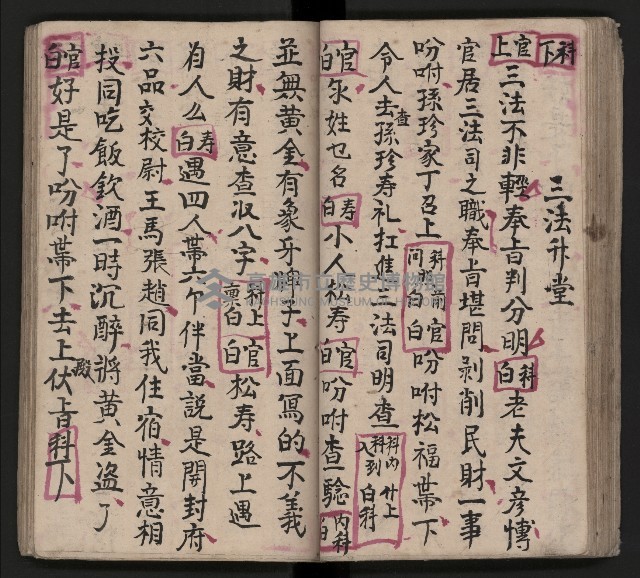 科下
三法升堂
官上三法不非輕奉旨判分明科白老夫文彥博
官居三法司之職奉旨堪問剥削民財一事
吩咐孫珍家丁召上科前官吩咐松福帶下
令人去查孫珍寿礼扛進三法司明查科內升上科到白
官白尔姓乜名寿白小人松寿官白吩咐查驗內科白
並無黃金有象牙牌子上面寫的不義
之財有意查収八字科上稟白官白松寿路上遇
為人么寿白遇四人帶六个伴當説是開封府
六品文校尉王馬張趙同我住宿情意相
投同吃飯飲酒一時沉醉將黃金盗了
官白好是了吩咐帶下去上殿伏旨科下
高雄市立歷史博物館
KAOHSIUNG MUSEUM OF HISTORY